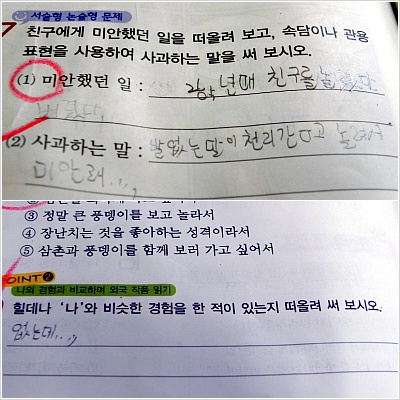 서술형 논술형 문제
친구에게 미안했던 일을 떠올려 보고, 속담이나 관용
표현을 사용하여 사과하는 말을 써 보시오.
(1) 미안했던 일 : 년때 친구를
(2) 사과하는 말 : 발없는말이 천리간다고 놀려서
미안해....
③ 정말 큰 풍뎅이를 보고 놀라서
④ 장난치는 것을 좋아하는 성격이라서
⑤ 삼촌과 풍뎅이를 함께 보러 가고 싶어서
OINT 2
나의 경험과 비교하며 외국 작품 읽기
힐데나 ‘나’와 비슷한 경험을 한 적이 있는지 떠올려 써 보시오.
없는데...,